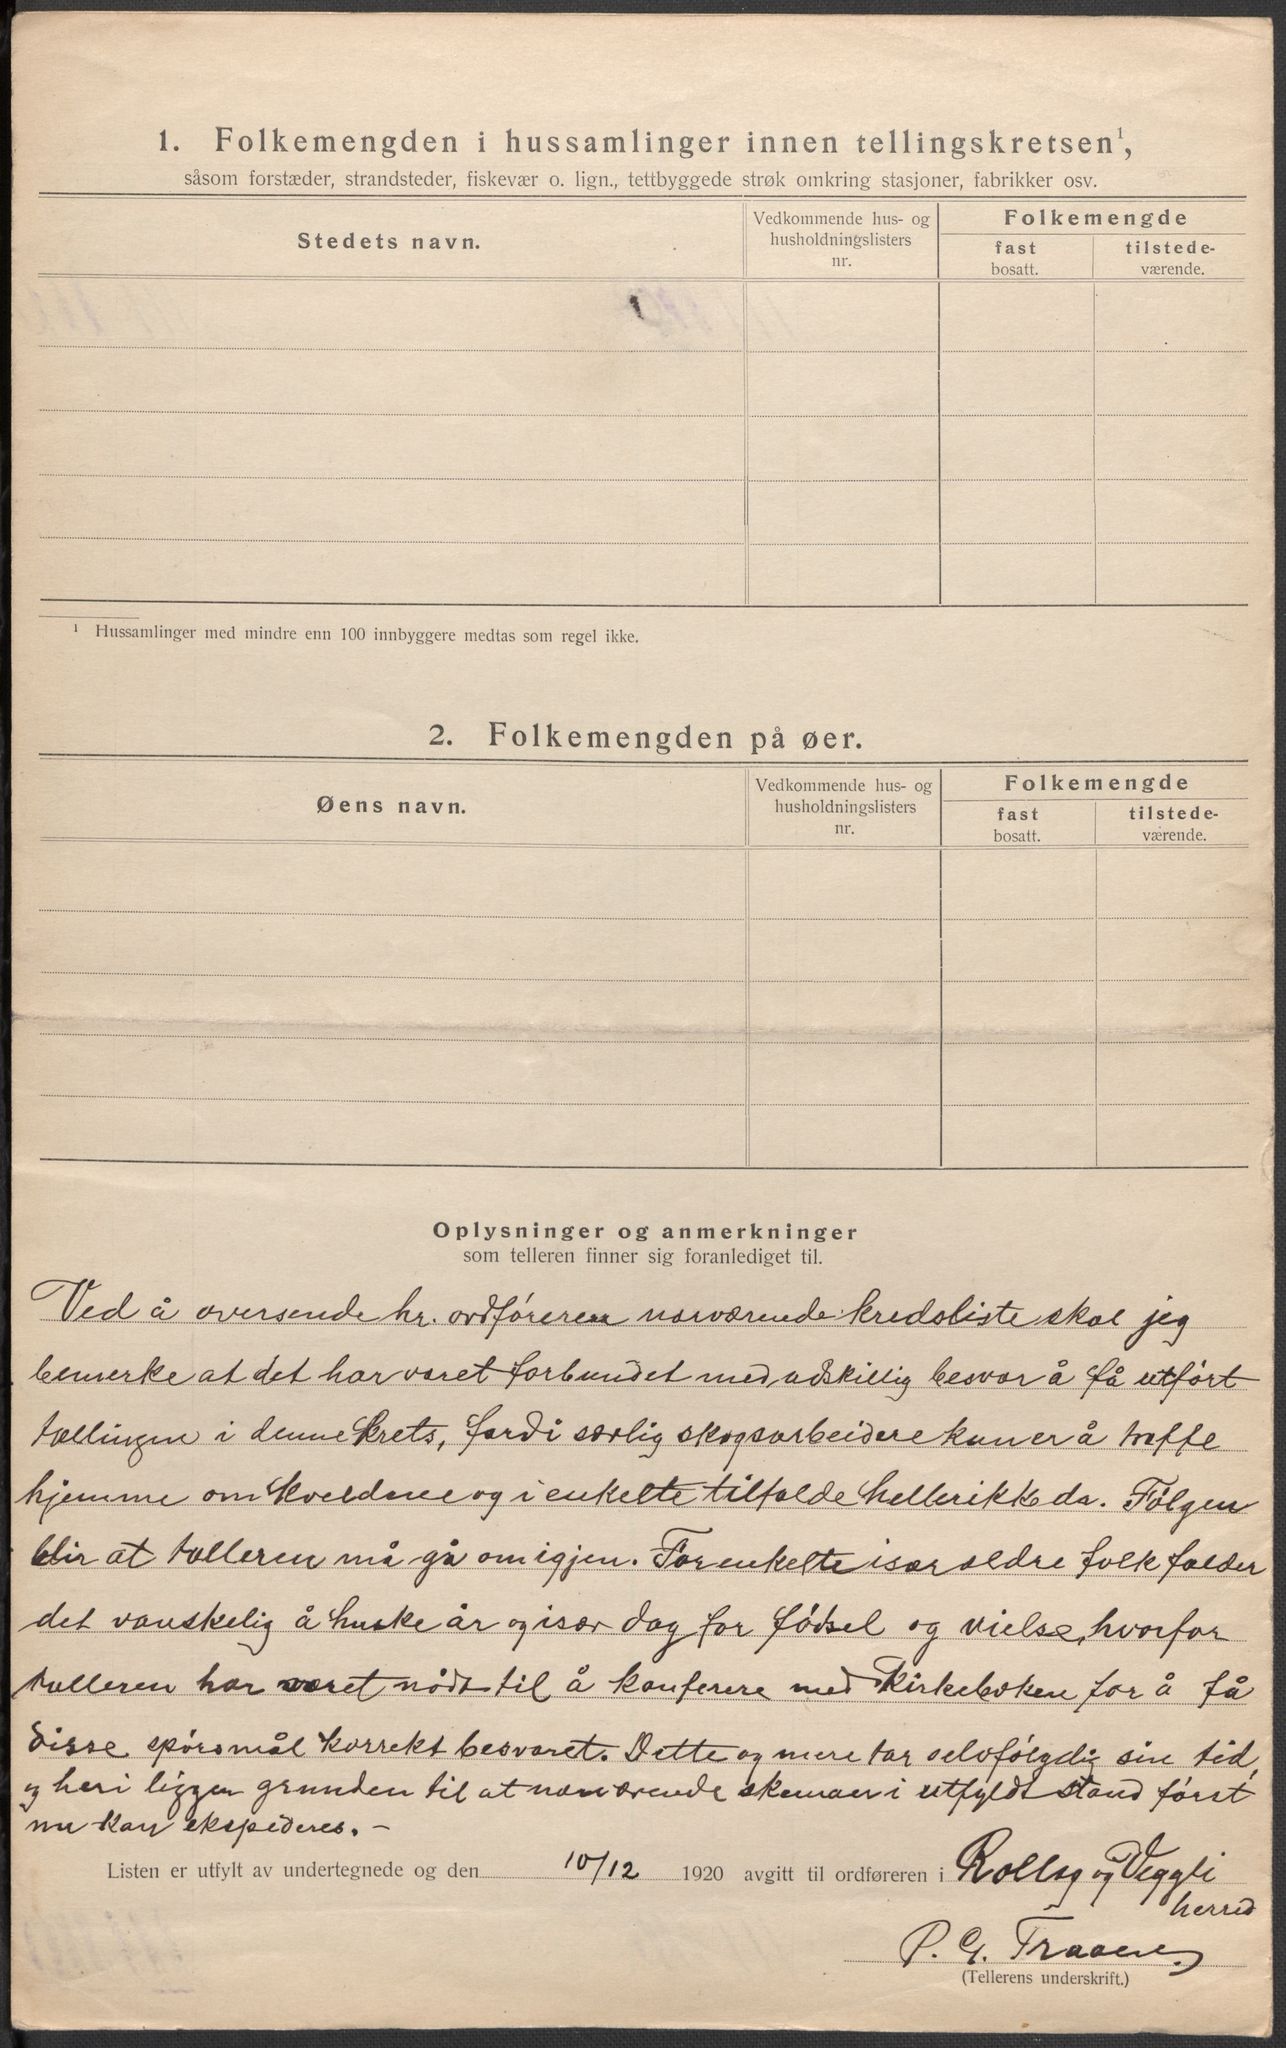 1. Folkemengden i hussamlinger innen tellingskretsen¹,
såsom forstæder, strandsteder, fiskevær o. lign., tettbyggede strøk omkring stasjoner, fabrikker osv.
Stedets navn.
Vedkommende hus- og
husholdningslisters
nr.
Folkemengde
fast
bosatt.
tilstede-
værende.
¹ Hussamlinger med mindre enn 100 innbyggere medtas som regel ikke.
2. Folkemengden på øer.
Øens navn.
Vedkommende hus- og
husholdningslisters
nr.
Folkemengde
fast
bosatt.
tilstede-
værende.
Oplysninger og anmerkninger
som telleren finner sig foranlediget til.
Ved å oversende hr. ordføreren nærværende kredsliste skal jeg
bemerke at det har været forbundet med adskillig besvær å få utført
tællingen i denne krets, fordi særlig skogsarbeidere kun er å treffe
hjemme om kveldene og i enkelte tilfælde heller ikke da. Følgen
blir at tælleren må gå om igjen. For enkelte især ældre folk falder
det vanskelig å huske år og især dag for fødsel og vielse, hvorfor
tælleren har været nødt til å konferere med kirkebøkene for å få
disse spørsmål korrekt besvaret. Dette og mere tar selvfølgelig sin tid,
og heri ligger grunden til at nærværende skemaer i utfyldt stand først
nu kan ekspederes. -
Listen er utfylt av undertegnede og den 10/12 1920 avgitt til ordføreren i Rollag og Veggli
herred
P. G. Traaen
(Tellerens underskrift.)